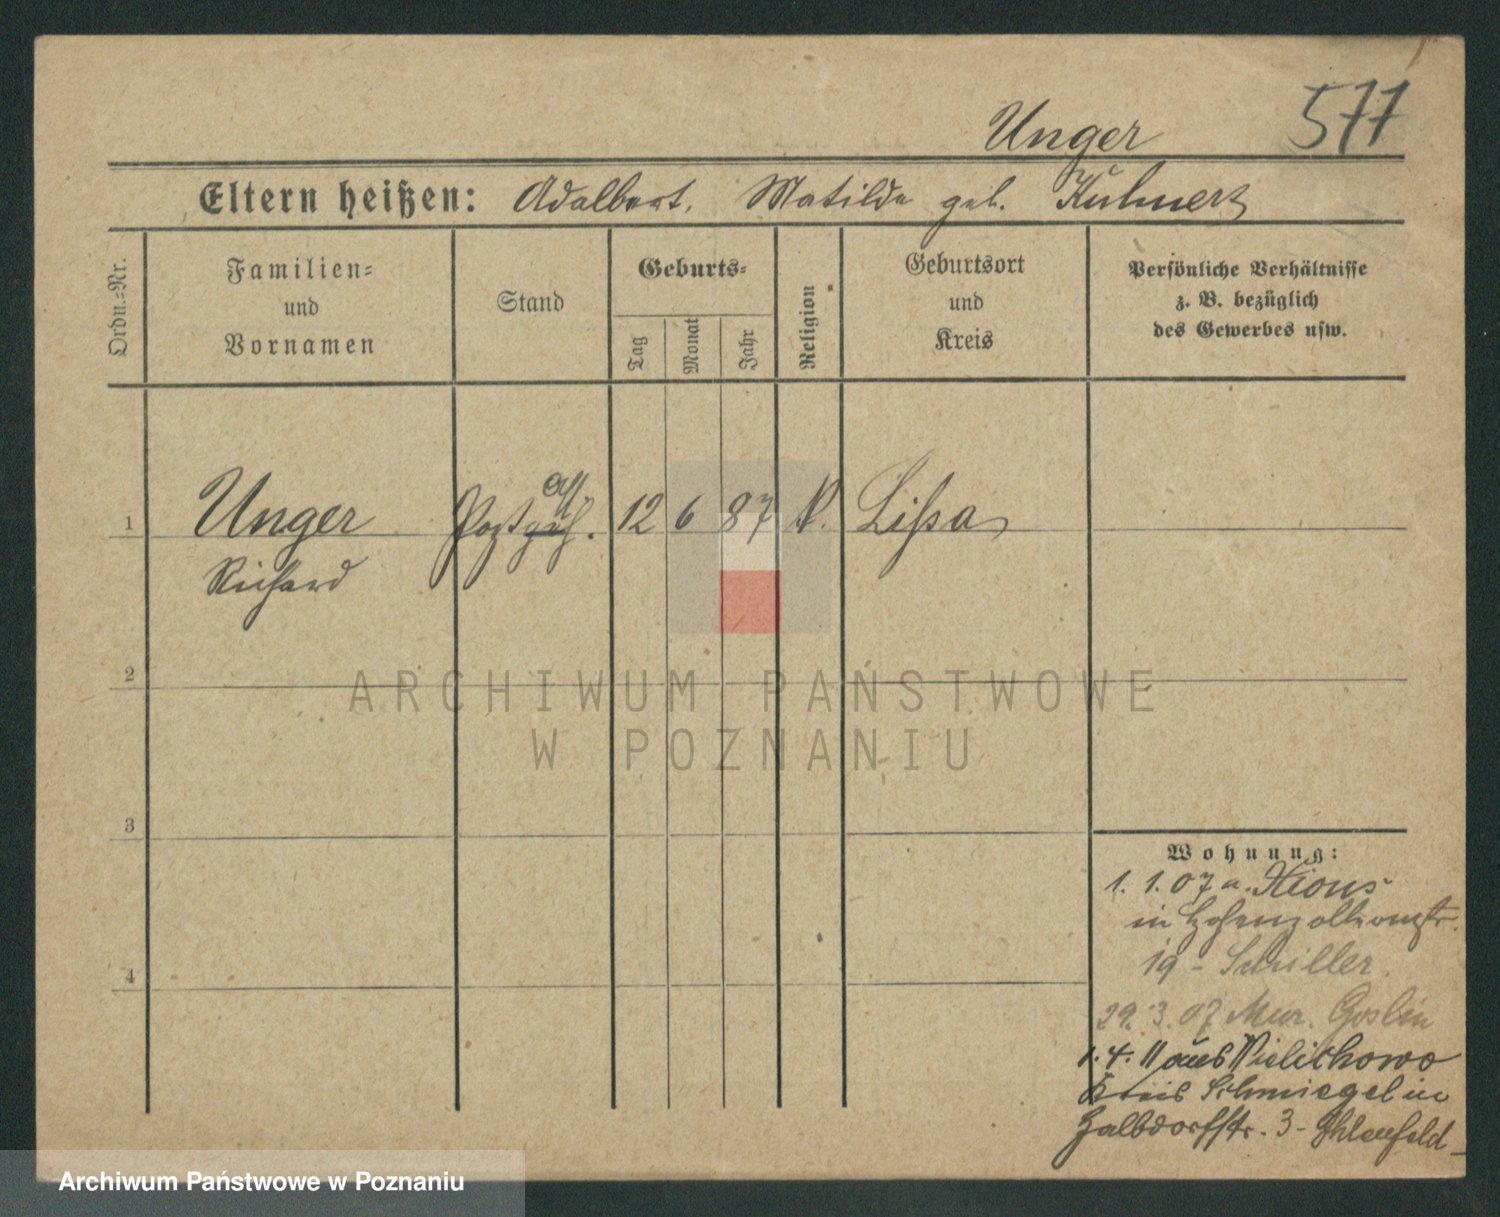 577
Unger
Eltern heißen: Adalbert, Matilde geb. Kuhnert
Ordn.-Nr.
Familien-
und
Vornamen
Stand
Geburts-
Tag
Monat
Jahr
Religion
Geburtsort
und
Kreis
Persönliche Verhältnisse
z. B. bezüglich
des Gewerbes usw.
1 Unger Postgeh. 12 6 87 Lißa
ass
Richard
2
3
4
Wohnung:
1. 1. 07 a. Xions
in Hohenzollernstr.
19 - Schiller
29. 3. 07 Mur. Goslin
1. 4. 11 aus Wielichowo
Kreis Schmiegel in
3 - Ihlenfeld
ARCHIWUM PAŃSTWOWE
W POZNANIU
Archiwum Państwowe w Poznaniu